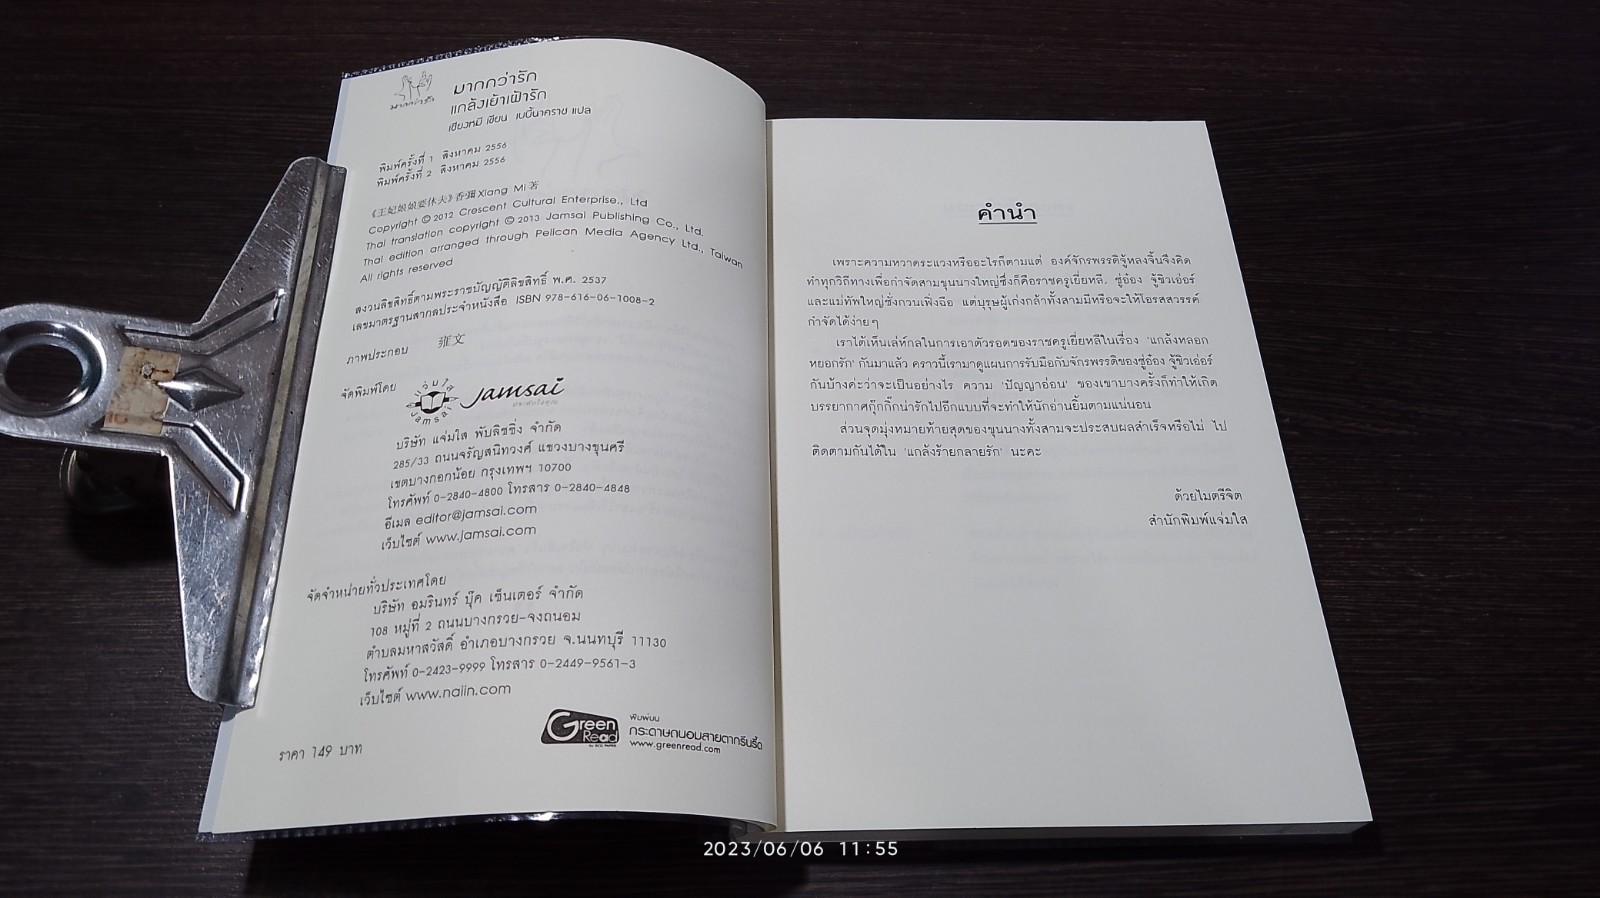 มากกว่ารัก
มากกว่ารัก
แกล้งเย้าเฝ้ารัก
เซียงหมี เขียน เบบี้นาคราช แปล
พิมพ์ครั้งที่ 1 สิงหาคม 2556
พิมพ์ครั้งที่ 2 สิงหาคม 2556
《王妃娘娘要休夫》香彌 Xiang Mi 著
Copyright © 2012 Crescent Cultural Enterprise., Ltd
Thai translation copyright © 2013 Jamsai Publishing Co., Ltd.
Thai edition arranged through Pelican Media Agency Ltd., Taiwan
All rights reserved
สงวนลิขสิทธิ์ตามพระราชบัญญัติลิขสิทธิ์ พ.ศ. 2537
เลขมาตรฐานสากลประจำหนังสือ ISBN 978-616-06-1008-2
ภาพประกอบ 雍文
จัดพิมพ์โดย
Jamsai
บริษัท แจ่มใส พับลิชชิ่ง จำกัด
285/33 ถนนจรัญสนิทวงศ์ แขวงบางขุนศรี
เขตบางกอกน้อย กรุงเทพฯ 10700
โทรศัพท์ 0-2840-4800 โทรสาร 0-2840-4848
อีเมล editor@jamsai.com
เว็บไซต์ www.jamsai.com
จัดจำหน่ายทั่วประเทศโดย
บริษัท อมรินทร์ บุ๊ค เซ็นเตอร์ จำกัด
108 หมู่ที่ 2 ถนนบางกรวย-จงถนอม
ตำบลมหาสวัสดิ์ อำเภอบางกรวย จ.นนทบุรี 11130
โทรศัพท์ 0-2423-9999 โทรสาร 0-2449-9561-3
เว็บไซต์ www.naiin.com
Green Read
พิมพ์บน
กระดาษถนอมสายตากรีนรี้ด
www.greenread.com
ราคา 149 บาท
คำนำ
เพราะความหวาดระแวงหรืออะไรก็ตามแต่ องค์จักรพรรดิจู้หลงจิ้นจึงคิด
ทำทุกวิถีทางเพื่อกำจัดสามขุนนางใหญ่ซึ่งก็คือราชครูเยี่ยหลี, ซู่อ๋อง จู้ชิวเอ่อร์
และแม่ทัพใหญ่ซั่งกวนเฟิ่งฉือ แต่บุรุษผู้เก่งกล้าทั้งสามมีหรือจะให้โอรสสวรรค์
กำจัดได้ง่ายๆ
เราได้เห็นเล่ห์กลในการเอาตัวรอดของราชครูเยี่ยหลีในเรื่อง 'แกล้งหลอก
หยอกรัก' กันมาแล้ว คราวนี้เรามาดูแผนการรับมือกับจักรพรรดิของซู่อ๋อง จู้ชิวเอ่อร์
กันบ้างค่ะว่าจะเป็นอย่างไร ความ 'ปัญญาอ่อน' ของเขาบางครั้งก็ทำให้เกิด
บรรยากาศกุ๊กกิ๊กน่ารักไปอีกแบบที่จะทำให้นักอ่านยิ้มตามแน่นอน
ส่วนจุดมุ่งหมายท้ายสุดของขุนนางทั้งสามจะประสบผลสำเร็จหรือไม่ ไป
ติดตามกันได้ใน 'แกล้งร้ายกลายรัก' นะคะ
ด้วยไมตรีจิต
สำนักพิมพ์แจ่มใส
2023/06/06 11:55